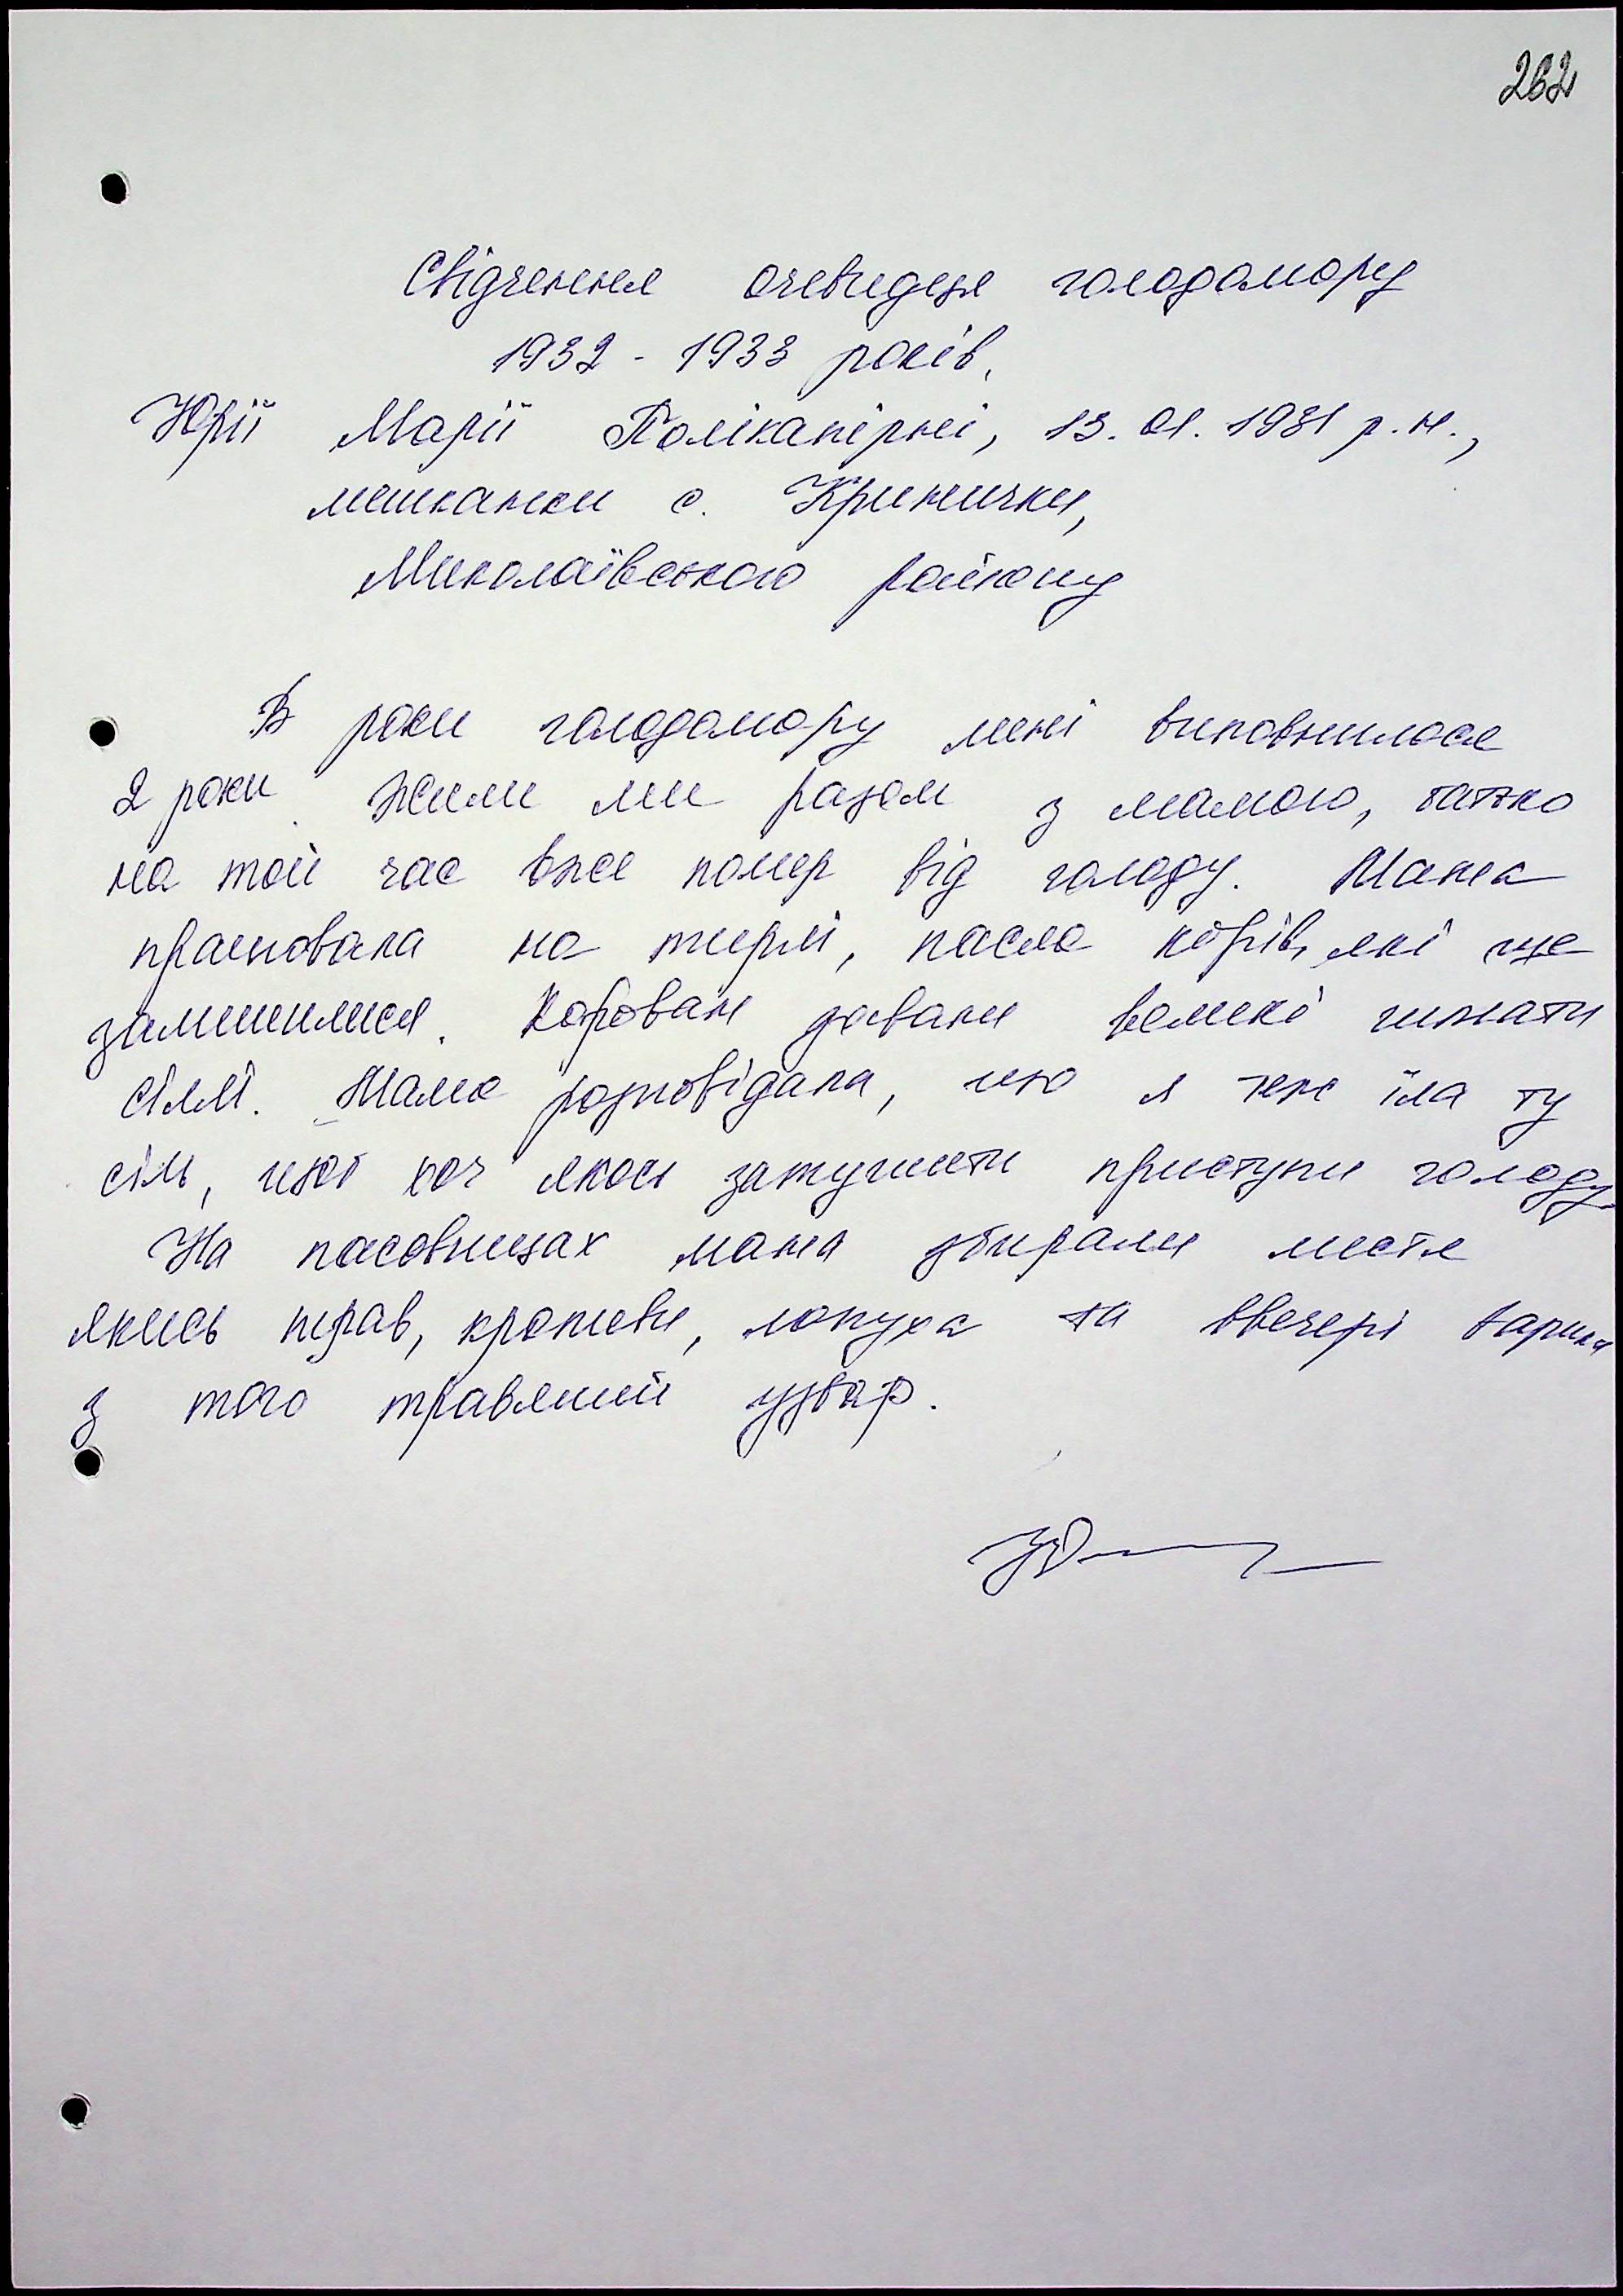 262
Свідчення очевидця голодомору
1932 - 1933 років.
Юрії Марії Полікапірні, 13. 01. 1931 р. н.,
мешканки с. Кринички,
Миколаївського району
В роки голодомору мені виповнилося
2 роки. Жили ми разом з мамою, батько
на той час вже помер від голоду. Мама
працювала на фермі, пасла корів, які ще
залишилися. Коровам давали великі шматки
сіллі. Мама розповідала, що я теж їла ту
сіль, щоб хоч якось затушити приступи голоду.
На пасовищах мама збирали листя
якись трав, кропиви, лопуха та ввечері варили
з того травляний узвар.